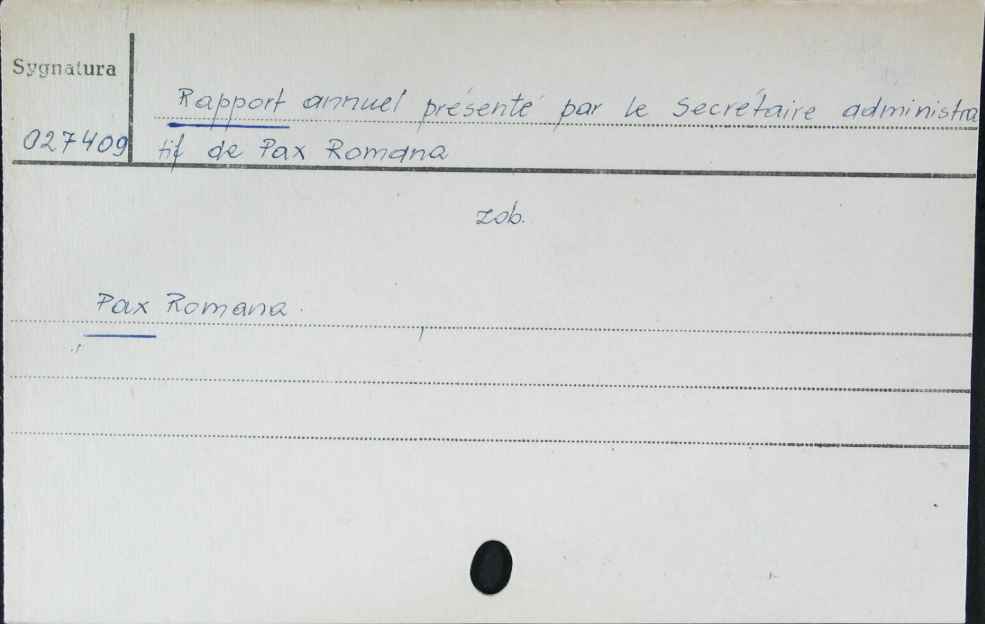 Sygnatura
Rapport annuel présenté par le Secrétaire administra
027409 tif de Pax Romana
zob.
Pax Romana.